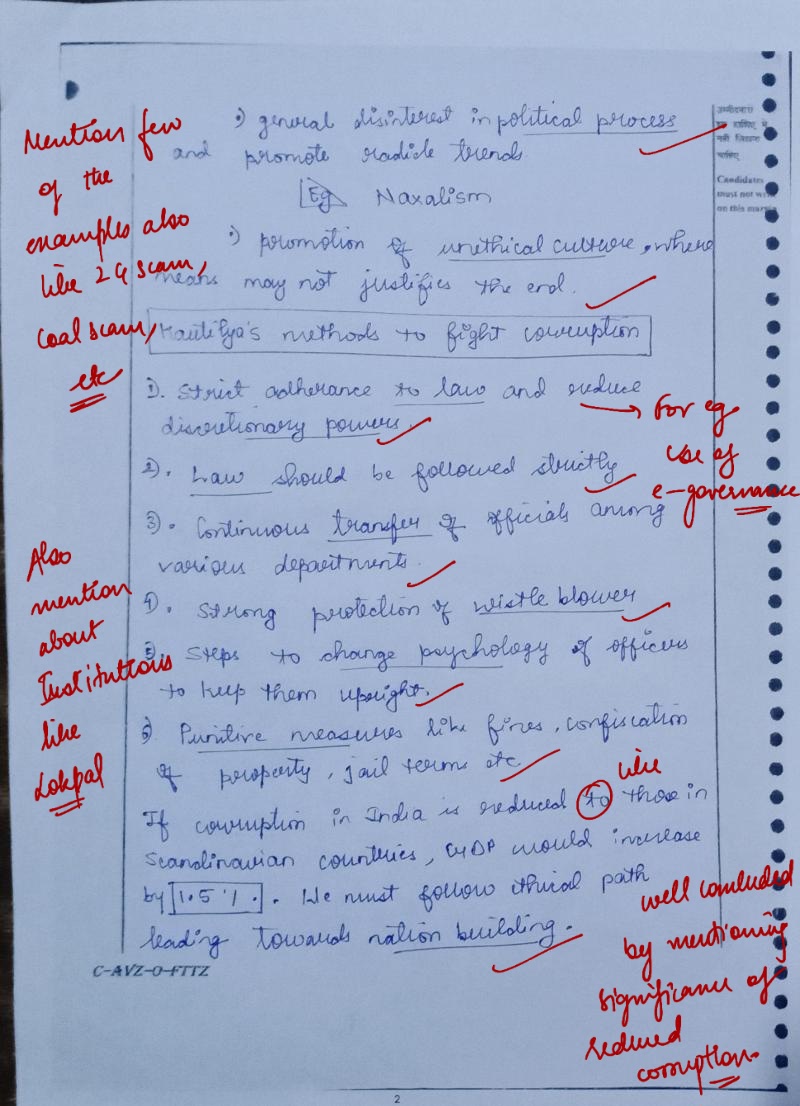 •) general disinterest in political process
and promote radicle trends.
Eg Naxalism
•) promotion of unethical culture, where
means may not justifies the end.
Kautilya's methods to fight corruption
1). Strict adherance to law and reduce
discretionary powers.
2). Law should be followed strictly
3). Continuous transfer of officials among
various departments.
4). Strong protection of wistle blower
5. Steps to change psychology of officers
to keep them upright.
6) Punitive measures like fines, confiscation
of property, jail terms etc
If corruption in India is reduced to those in
Scandinavian countries, GDP would increase
by 1.5 %. We must follow ethical path
leading towards nation building.
C-AVZ-O-FTTZ
2
Mention few
of the
examples also
like 2G scam,
Coal scam,
etc
Also
mention
about
Institutions
like
Lokpal
→ For eg.
Use of
e-governance
like
well concluded
by mentioning
significance of
reduced
corruption.
उम्मीदवार
इस हाशिए में
नहीं लिखना
चाहिए
Candidates
must not
on this